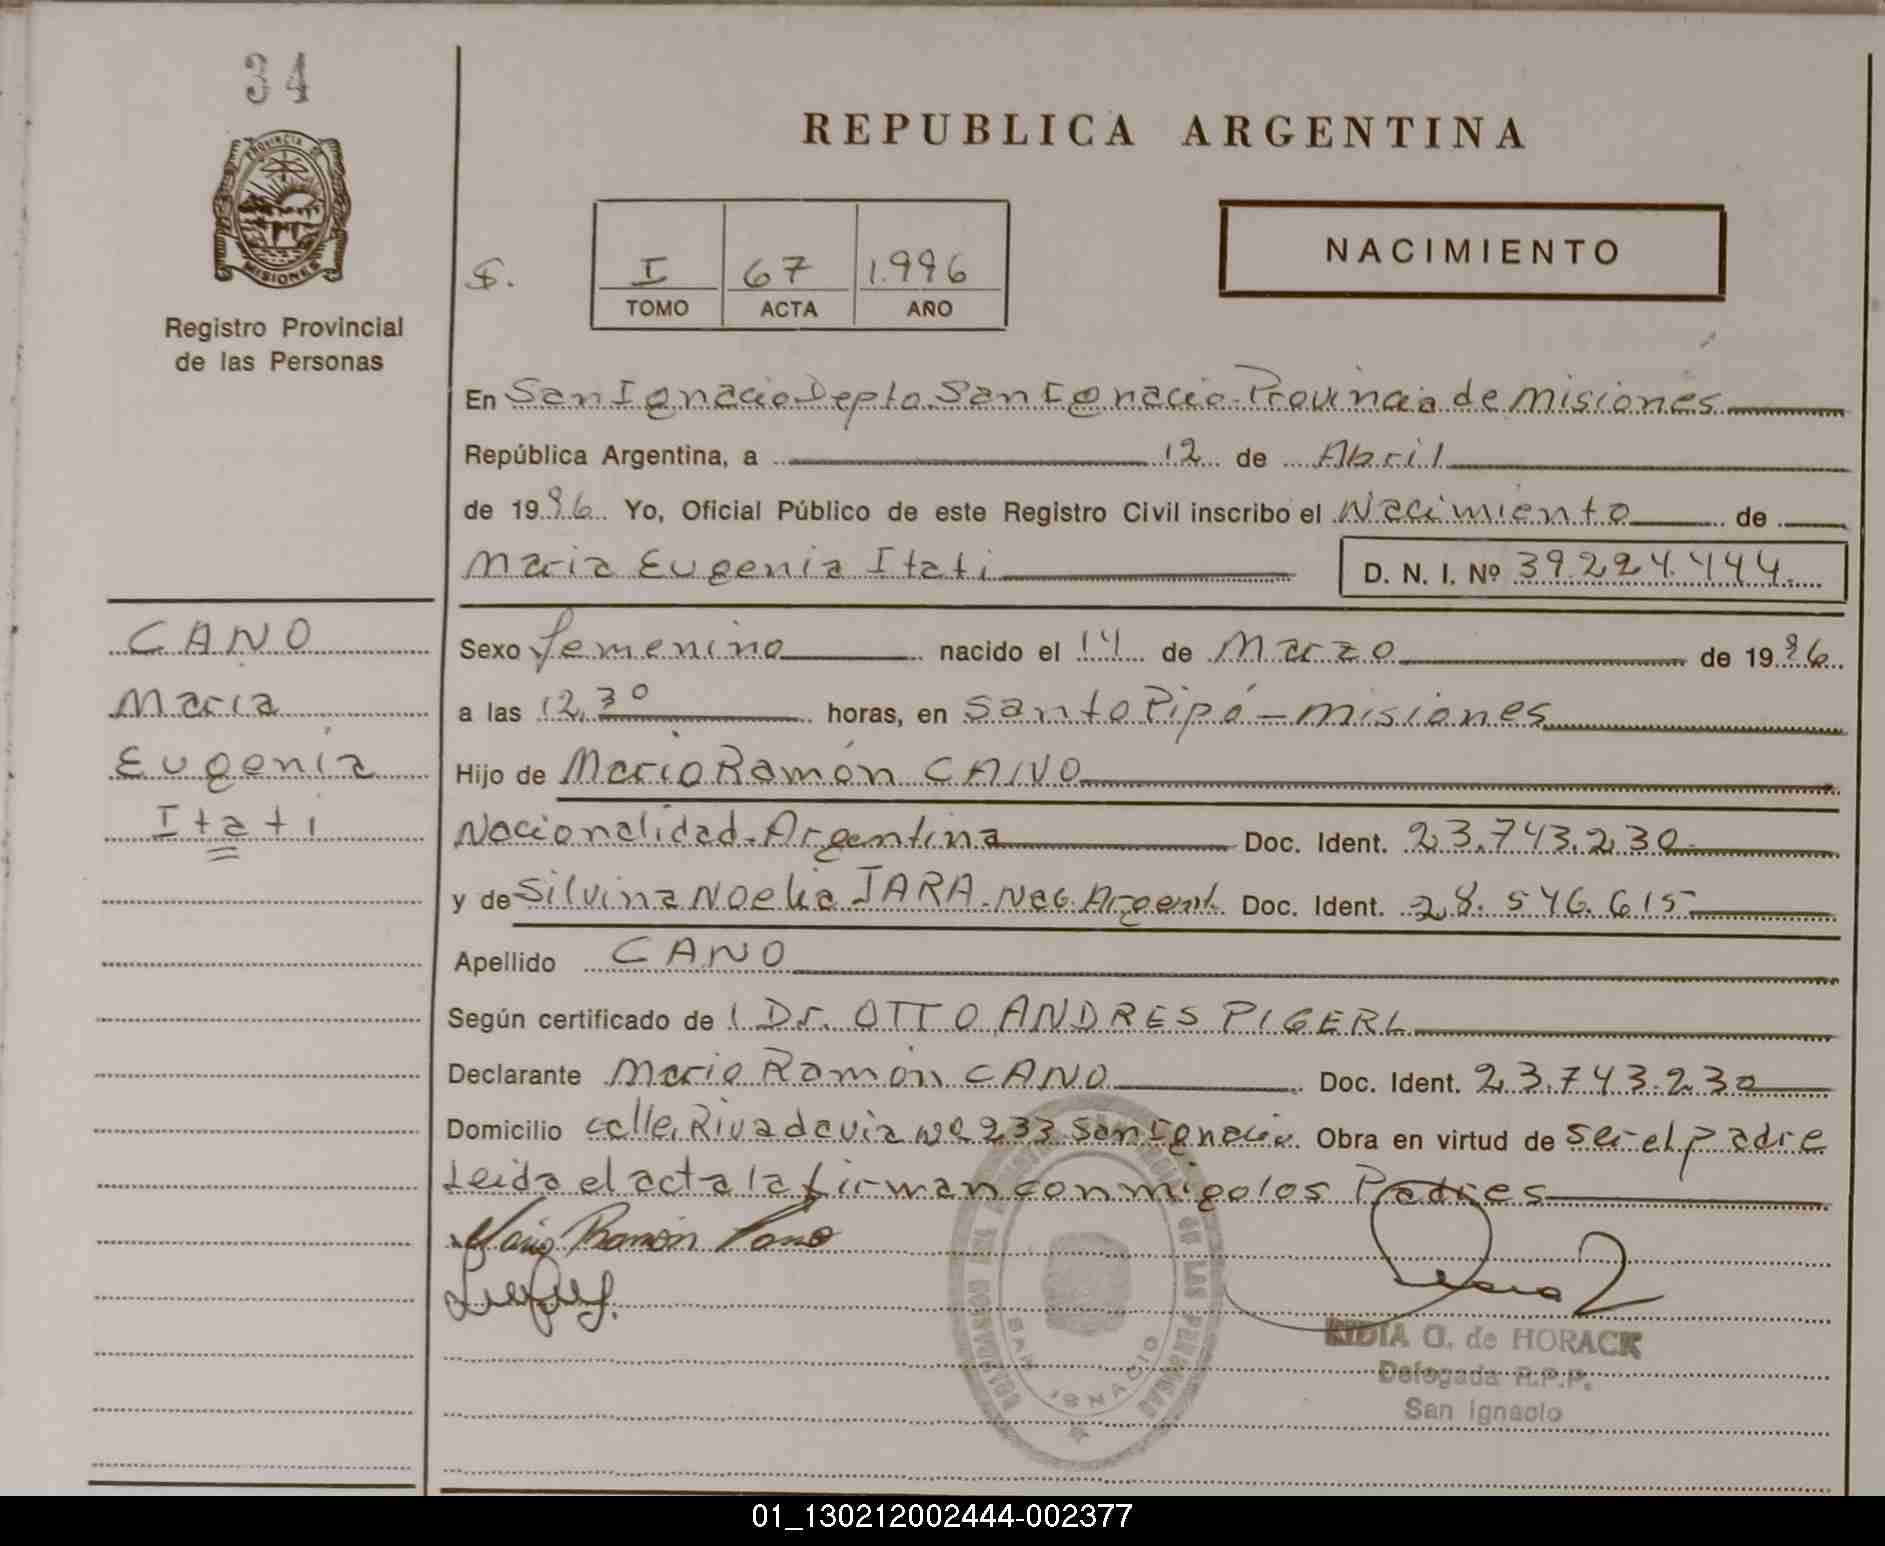 34
PROVINCIA DE
MISIONES
Registro Provincial
de las Personas
REPUBLICA ARGENTINA
NACIMIENTO
S. I 67 1.996
TOMO ACTA AÑO
En San Ignacio Depto. San Ignacio - Provincia de Misiones
República Argentina, a 12 de Abril
de 1996. Yo, Oficial Público de este Registro Civil inscribo el Nacimiento de
Maria Eugenia Itati D. N. I. Nº 39.224.444
CANO
Maria
Eugenia
Itati
Sexo femenino nacido el 14 de Marzo de 1996
a las 12,30 horas, en Santo Pipó - Misiones
Hijo de Mario Ramón CANO
Nacionalidad. Argentina Doc. Ident. 23.743.230
y de Silvina Noelia JARA. Nac. Argent. Doc. Ident. 28.546.615
Apellido CANO
Según certificado de l Dr. OTTO ANDRES PIGERL
Declarante Mario Ramón CANO Doc. Ident. 23.743.230
Domicilio calle Rivadavia Nº 233 San Ignacio. Obra en virtud de ser el padre
Leida el acta la firman conmigo los Padres
Mario Ramón Cano
SAN IGNACIO
G. de HORACK
Delegada R.P.P.
San Ignacio
01_130212002444-002377